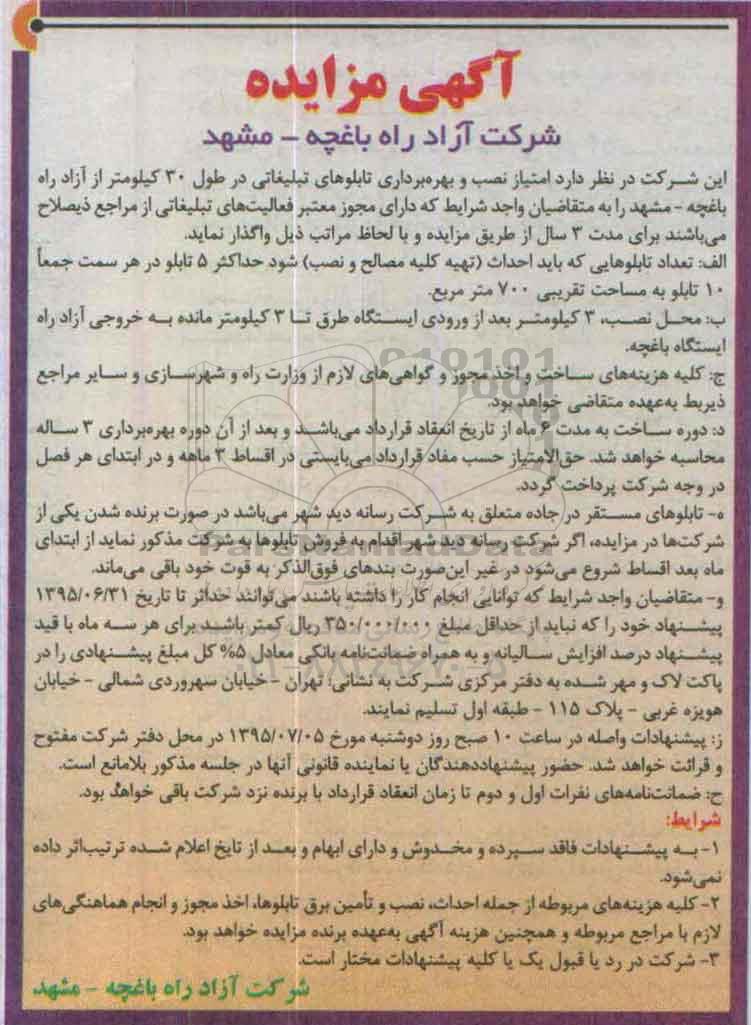 آگهی مزایده
شرکت آزاد راه باغچه - مشهد
این شرکت در نظر دارد امتیاز نصب و بهره‌برداری تابلوهای تبلیغاتی در طول ۳۰ کیلومتر از آزاد راه
باغچه - مشهد را به متقاضیان واجد شرایط که دارای مجوز معتبر فعالیت‌های تبلیغاتی از مراجع ذیصلاح
می‌باشند برای مدت ۳ سال از طریق مزایده و با لحاظ مراتب ذیل واگذار نماید.
الف: تعداد تابلوهایی که باید احداث (تهیه کلیه مصالح و نصب) شود حداکثر ۵ تابلو در هر سمت جمعاً
۱۰ تابلو به مساحت تقریبی ۷۰۰ متر مربع.
ب: محل نصب، ۳ کیلومتر بعد از ورودی ایستگاه طرق تا ۳ کیلومتر مانده به خروجی آزاد راه
ایستگاه باغچه.
ج: کلیه هزینه‌های ساخت و اخذ مجوز و گواهی‌های لازم از وزارت راه و شهرسازی و سایر مراجع
ذیربط به‌عهده متقاضی خواهد بود.
د: دوره ساخت به مدت ۶ ماه از تاریخ انعقاد قرارداد می‌باشد و بعد از آن دوره بهره‌برداری ۳ ساله
محاسبه خواهد شد. حق‌الامتیاز حسب مفاد قرارداد می‌بایستی در اقساط ۳ ماهه و در ابتدای هر فصل
در وجه شرکت پرداخت گردد.
ه- تابلوهای مستقر در جاده متعلق به شرکت رسانه دید شهر می‌باشد در صورت برنده شدن یکی از
شرکت‌ها در مزایده، اگر شرکت رسانه دید شهر اقدام به فروش تابلوها به شرکت مذکور نماید از ابتدای
ماه بعد اقساط شروع می‌شود در غیر این‌صورت بندهای فوق‌الذکر به قوت خود باقی می‌ماند.
و- متقاضیان واجد شرایط که توانایی انجام کار را داشته باشند می‌توانند حداثر تا تاریخ ۱۳۹۵/۰۶/۳۱
پیشنهاد خود را که نباید از حداقل مبلغ ۳۵۰/۰۰۰/۰۰۰ ریال کمتر باشد برای هر سه ماه با قید
پیشنهاد درصد افزایش سالیانه و به همراه ضمانت‌نامه بانکی معادل ۵% کل مبلغ پیشنهادی را در
پاکت لاک و مهر شده به دفتر مرکزی شرکت به نشانی: تهران - خیابان سهروردی شمالی - خیابان
هویزه غربی - پلاک ۱۱۵ - طبقه اول تسلیم نمایند.
ز: پیشنهادات واصله در ساعت ۱۰ صبح روز دوشنبه مورخ ۱۳۹۵/۰۷/۰۵ در محل دفتر شرکت مفتوح
و قرائت خواهد شد. حضور پیشنهاددهندگان یا نماینده قانونی آنها در جلسه مذکور بلامانع است.
ح: ضمانت‌نامه‌های نفرات اول و دوم تا زمان انعقاد قرارداد با برنده نزد شرکت باقی خواهد بود.
شرایط:
۱- به پیشنهادات فاقد سپرده و مخدوش و دارای ابهام و بعد از تایخ اعلام شده ترتیب‌اثر داده
نمی‌شود.
۲- کلیه هزینه‌های مربوطه از جمله احداث، نصب و تأمین برق تابلوها، اخذ مجوز و انجام هماهنگی‌های
لازم با مراجع مربوطه و همچنین هزینه آگهی به‌عهده برنده مزایده خواهد بود.
۳- شرکت در رد یا قبول یک یا کلیه پیشنهادات مختار است.
شرکت آزاد راه باغچه - مشهد
ParsNamadData